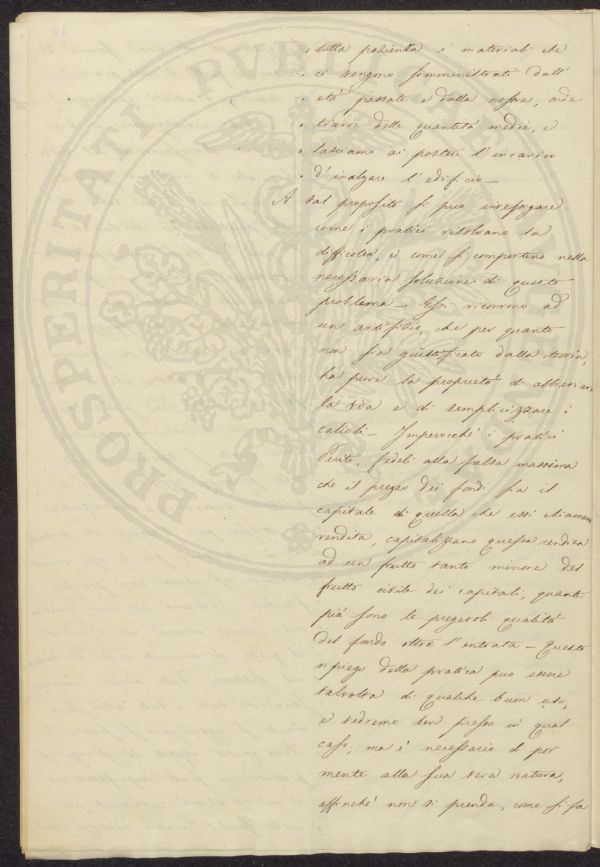 « tutta pazienza i materiali che
« ci vengono somministrati dall'
« età passate e dalla nostra, onde
« trarne delle quantità medie, e
« lasciamo ai posteri l'incarico
« d'inalzare l'edificio —
A tal proposito si può investigare
come i pratici risolvano la
difficoltà, e come si comportino nella
necessaria soluzione di questo
problema — Essi ricorrono ad
un artifizio, che per quanto
non sia giustificato dalla teoria,
ha pure la proprietà di abbreviare
la via e di semplicizzare i
calcoli — Imperocchè i pratici
Periti, fedeli alla falsa massima
che il pregio dei fondi sia il
capitale di quella che essi chiamano
rendita, capitalizzano questa rendita
ad un frutto tanto minore del
frutto civile dei capitali, quanto
più sono le pregevoli qualità
del fondo oltre l'entrata — Questo
ripiego della pratica può essere
talvolta di qualche buon uso,
e vedremo ben presto in qual
caso; ma è necessario di por
mente alla sua vera natura,
affinché non si prenda, come si fa
PROSPERITATI PVBLICAE